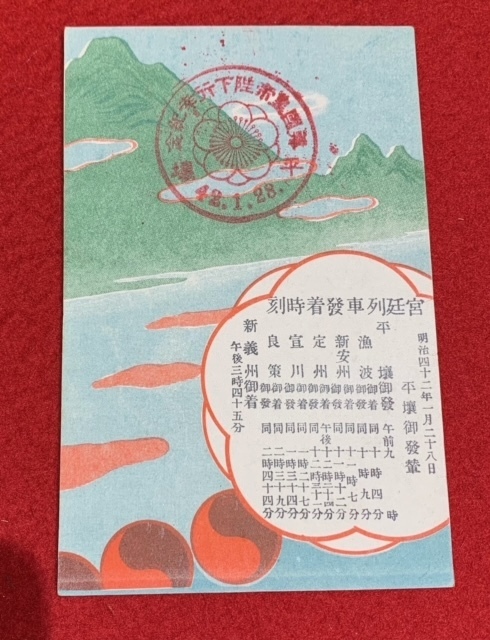 韓國皇帝陛下行幸紀念
平壤
42.1.28.
宮廷列車發着時刻
明治四十二年一月二十八日
平壤御發輦
平壤御發 午前九時
漁波御着 同十時四分
御發 同十時九分
新安州御着 同十一時七分
御發 同十一時十二分
定州御着 午後
御發 同
宣川御着 同一時二十七分
御發 同一時三十四分
良策御着 同二時十九分
御發 同二時
新義州御着
午後三時四十五分